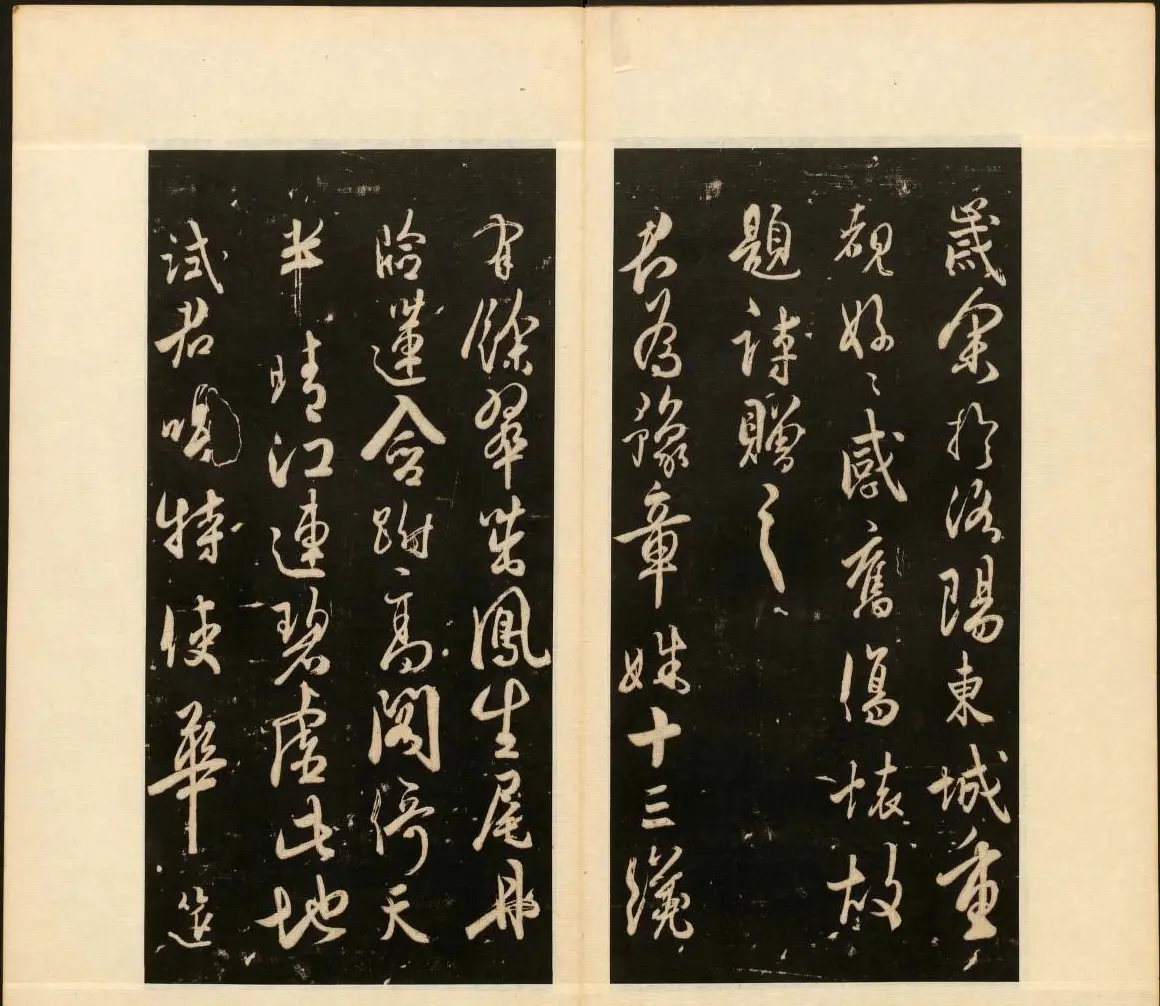 歲余於洛陽東城重
覩好〻感舊傷懷故
題詩贈之
君為豫章姝十三纔
有餘翠茁鳳生尾丹
臉蓮含跗高閣倚天
半晴江連碧虛此地
試君唱特使華筵